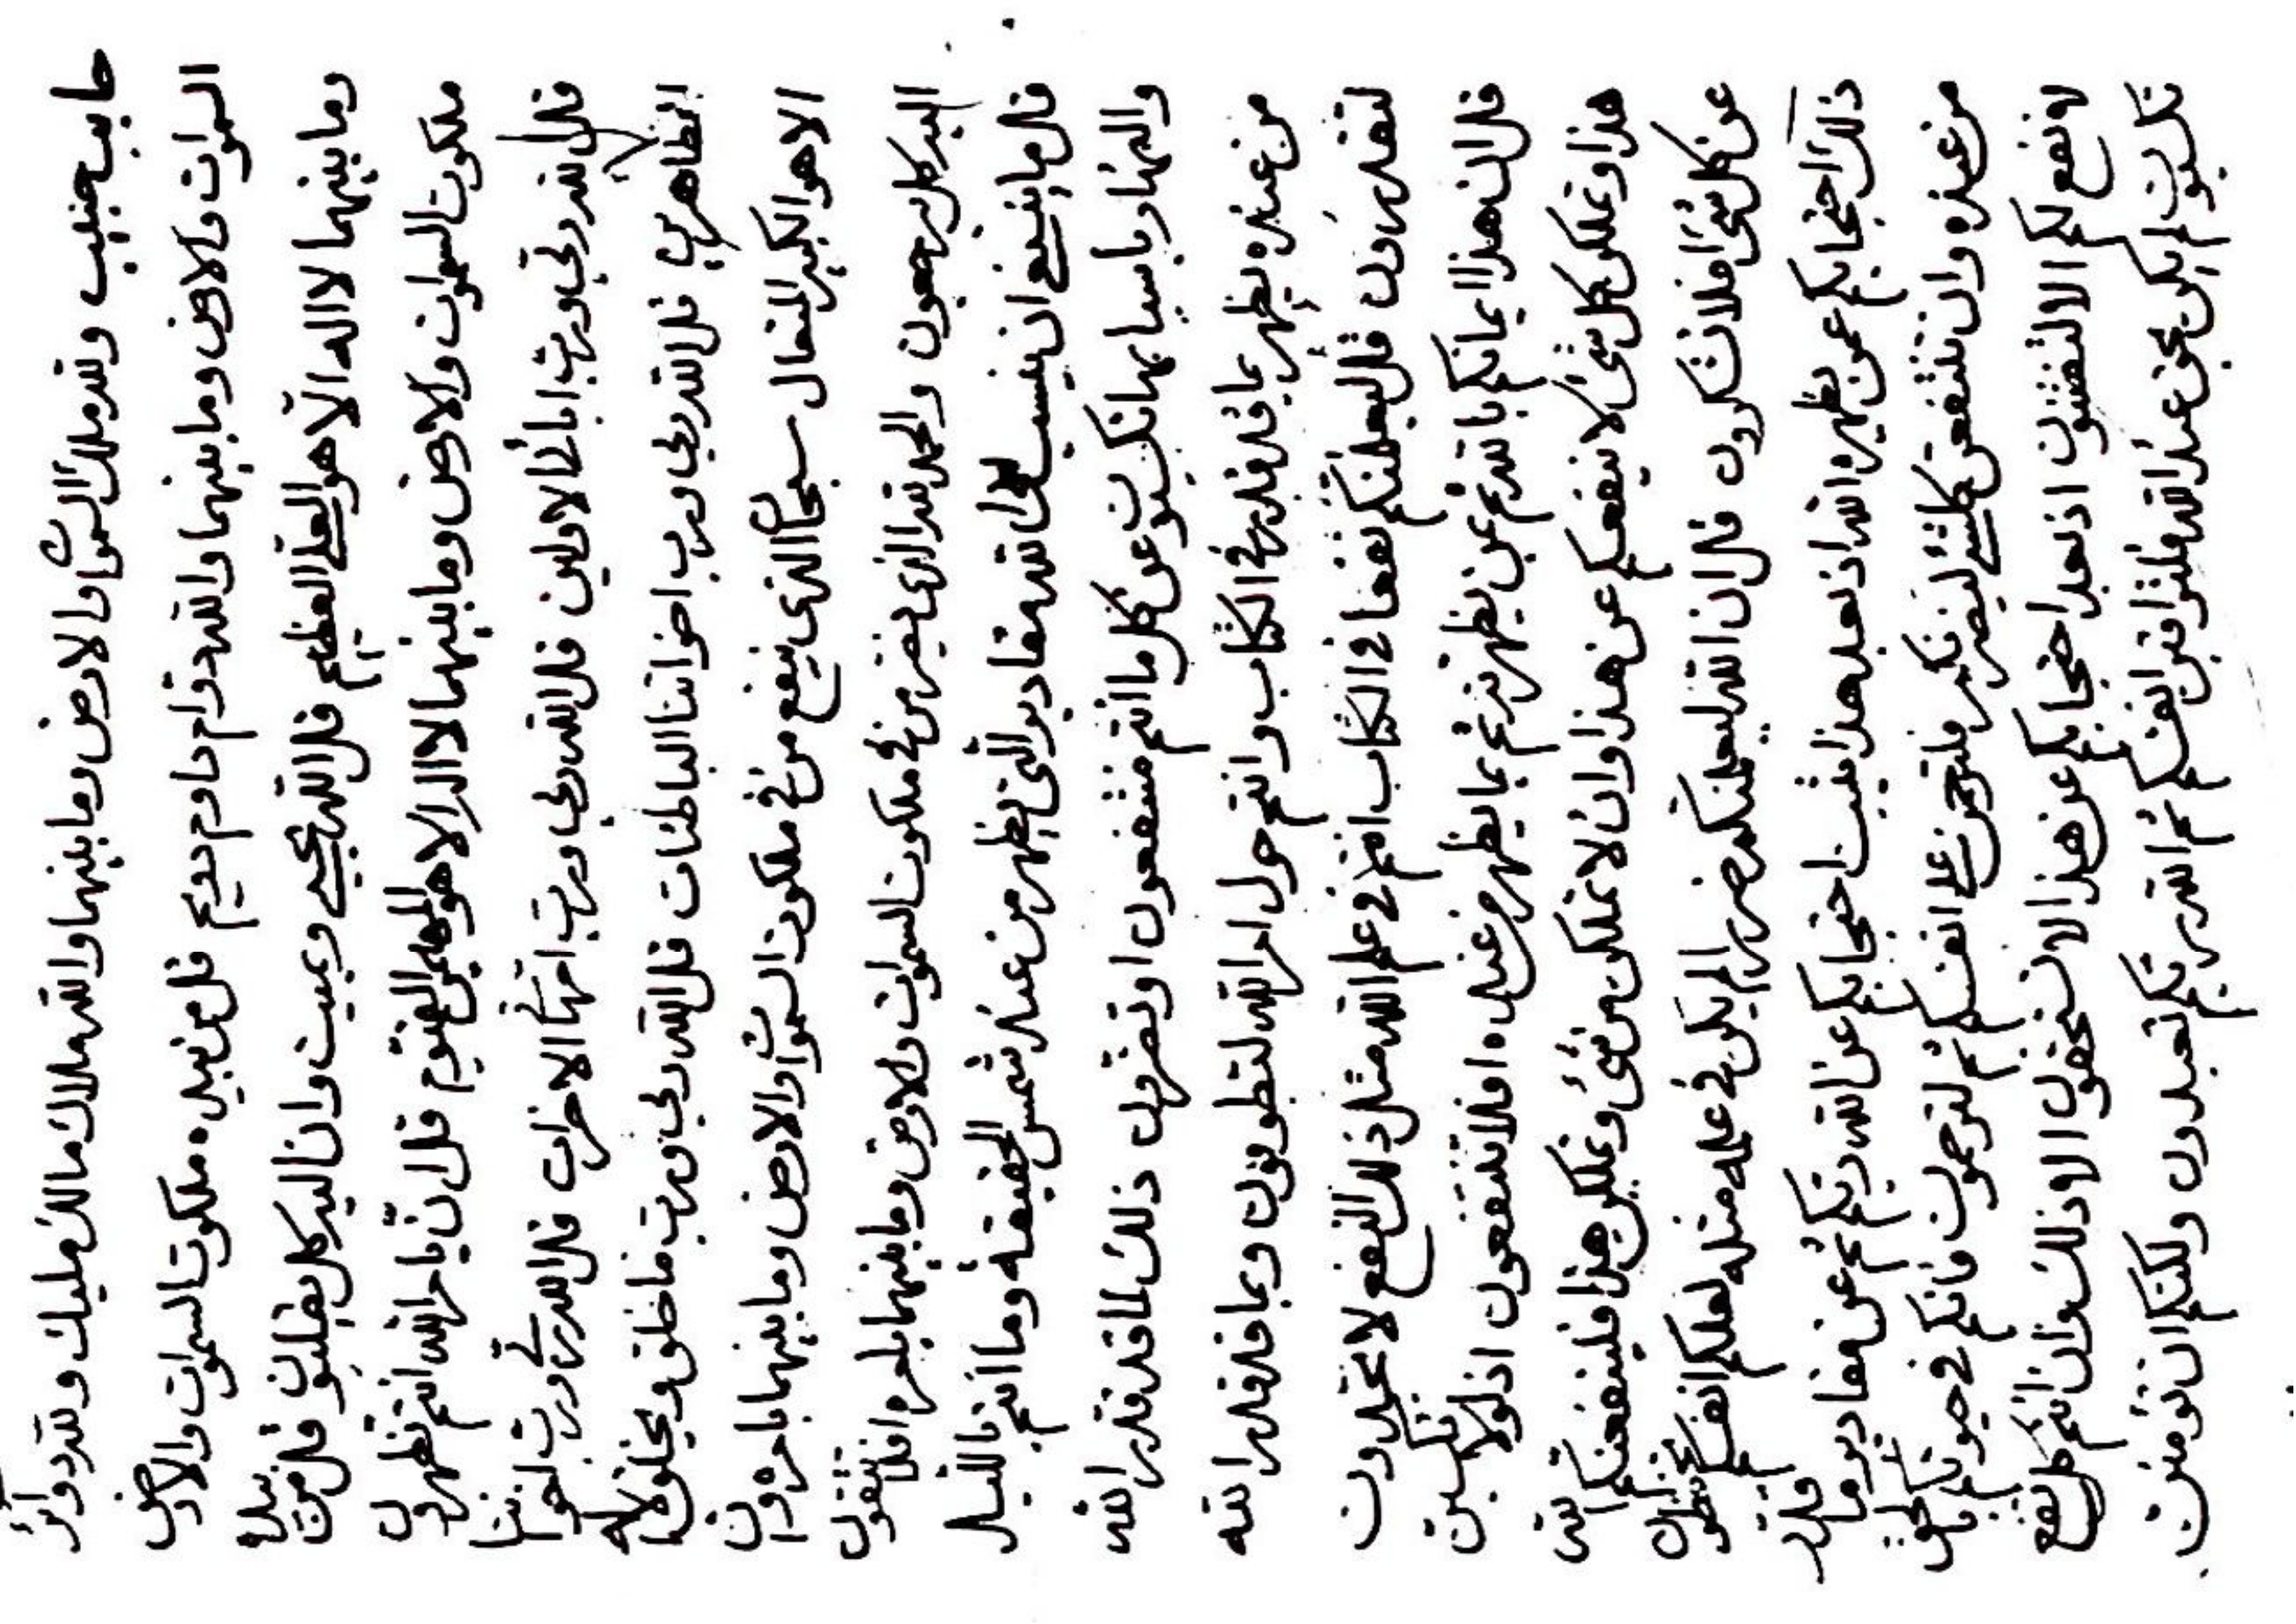 حابب حبيب ولله ملك السموات والارض وما بينهما والله ملاك مالك مليك ولله دوائر
السموات والارض وما بينهما والله دوام داوم دويم قل من بيده ملكوت السموات والارض
وما بينهما لا اله الا هو العلي العظيم قل الله يحيي ويميت وان اليه كل يقلبون قل من بيده
ملكوت السموات والارض وما بينهما لا اله الا هو المهيمن القيوم قل ان يا انتم تظهرون
قل الله ربي ورب ابائنا الاولين قل الله ربي ورب امهاتنا الاخرات قل الله ربي ورب اخواننا
الظاهرين قل الله ربي ورب اخواتنا الباطنات قل الله ربي ورب ما خلق ويخلق لا اله
الا هو الكبير المتعال سبحان الذي ينفع من في ملكوت السموات والارض وما بينهما بامره وان
اليه كل يرجعون والحمد لله الذي يضر من في ملكوت السموات والارض وما بينهما بامره افلا تتقون
قل ما ينبغي ان ينسب الى الله مقادير التي يظهر من عند شمس الحقيقة وما انتم بالليل
والنهار باسبابها تكسبون عن كل ما انتم منتفعون او تضرون ذلك لما قد قدر الله
من عنده يظهر بما قد قدر في الكتاب وانتم حول امر الله لتطوفون وبما قد قدر الله
لتقدرون قل ليعلمنكم نفعا في الكتاب انتم في علم الله مثل ذلك النفع لا تجدون
قل ان هذا ايمانكم بالله ثم بمن يظهره ثم بما يظهر من عنده افلا تنتفعون اذ لو لا تكسبن
هذا وتملكن كل شئ لا ينفعكم عن هذا وان لا تملكن من شئ وتملكن هذا فلينفعنكم الله
عن كل شئ افلا تشكرون قل ان الله ليعلمنكم ضرا لم يكن في علمه مثله لعلكم انفسكم تحفظون
ذلك احتجابكم عمن يظهره الله اذ بعد هذا يثبت احتجابكم عن الله ربكم ثم عن مقادير ما قدر
من عنده وان تنتفعن كلشئ ليضرنكم فلترحمن على انفسكم ثم لترحمون فانكم في حيوتكم بالحق
لا ينفع لكم الا اذ بعد احتجابكم عن هذا لا تستحقون الا وذلك وان انتم كل نفع
تكسبون لم يكن بحق عند الله فلتراقبن انفسكم ثم الله ربكم تعبدون ولكنكم ان تؤمنون